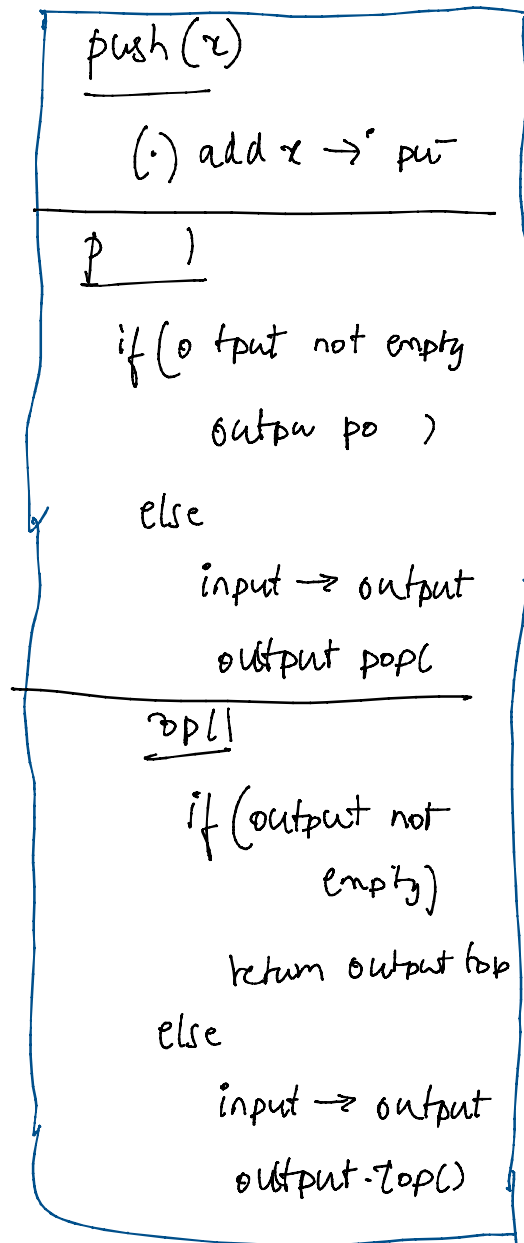 push(x)
(·) add x →
if(o tput not empty
else
input → output
output pop(
if(output not
empty)
return output top
else
input → output
output.top()